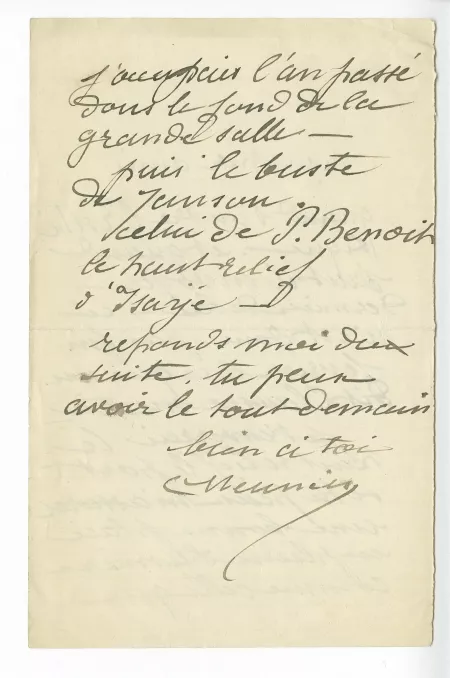 j'occupais l'an passé
dans le fond de la
grande salle —
puis le buste
de Janson.
celui de P. Benoit
le haut relief
d'Isaÿe —
reponds moi de
suite. tu peux
avoir le tout demain
bien a toi
CMeunier